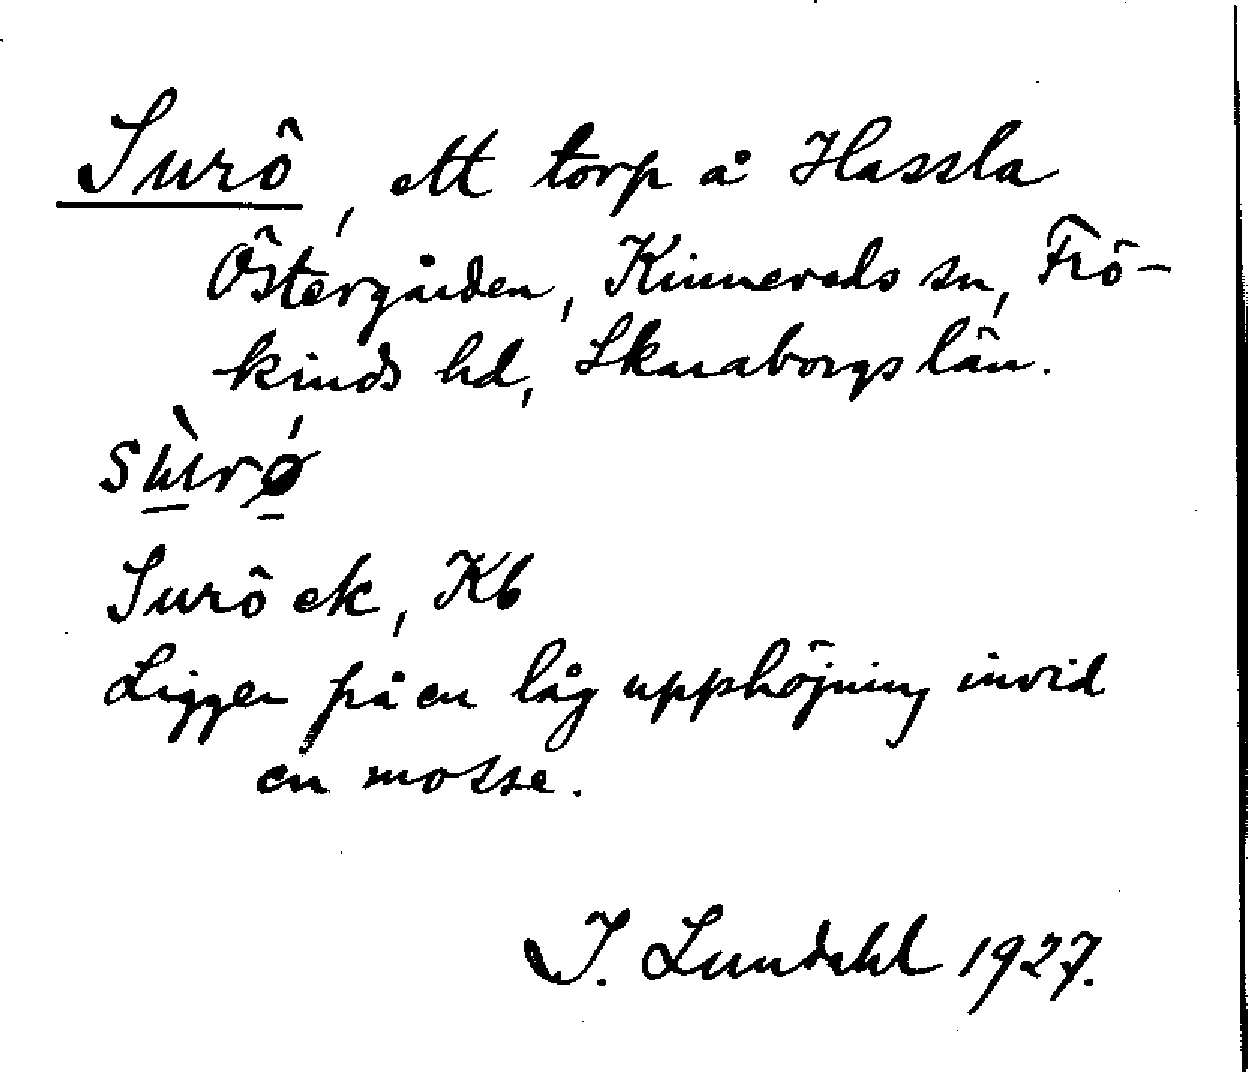 Surö, ett torp å Hassla
Östergården, Kinnereds sn, Frö-
kinds hd, Skaraborgs län.
sùrǿ
Surö ek, Kb
Ligger på en låg upphöjning invid
en mosse.
I. Lundahl 1927.